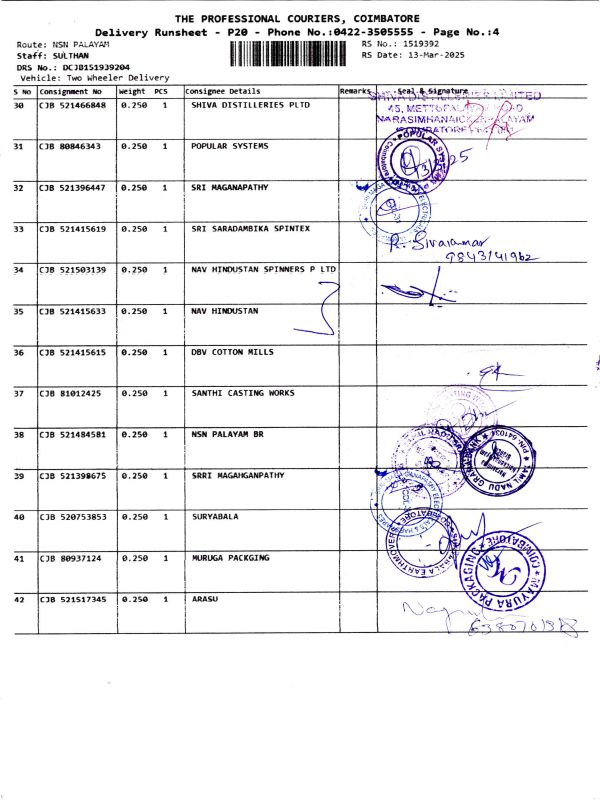 THE PROFESSIONAL COURIERS, COIMBATORE
Delivery Runsheet - P20 - Phone No.:0422-3505555 - Page No.:4
Route: NSN PALAYAM RS No.: 1519392
Staff: SULTHAN RS Date: 13-Mar-2025
DRS No.: DCJB151939204
Vehicle: Two Wheeler Delivery
S No Consignment No Weight PCS Consignee Details Remarks Seal & Signature
30 CJB 521466848 0.250 1 SHIVA DISTILLERIES PLTD
SHIVA DISTILLERIES LIMITED
45, METTUPALAYAM ROAD
NARASIMHANAICKENPALAYAM
COIMBATORE
31 CJB 80846343 0.250 1 POPULAR SYSTEMS
POPULAR SYSTEMS
32 CJB 521396447 0.250 1 SRI MAGANAPATHY
33 CJB 521415619 0.250 1 SRI SARADAMBIKA SPINTEX
R. Sivakumar
9843141962
34 CJB 521503139 0.250 1 NAV HINDUSTAN SPINNERS P LTD
35 CJB 521415633 0.250 1 NAV HINDUSTAN
36 CJB 521415615 0.250 1 DBV COTTON MILLS
37 CJB 81012425 0.250 1 SANTHI CASTING WORKS
38 CJB 521484581 0.250 1 NSN PALAYAM BR
TAMIL NADU GRAMA BANK
39 CJB 521398675 0.250 1 SRRI MAGAHGANPATHY
40 CJB 520753853 0.250 1 SURYABALA
41 CJB 80937124 0.250 1 MURUGA PACKGING
MAYURA PACKAGING COIMBATORE
42 CJB 521517345 0.250 1 ARASU